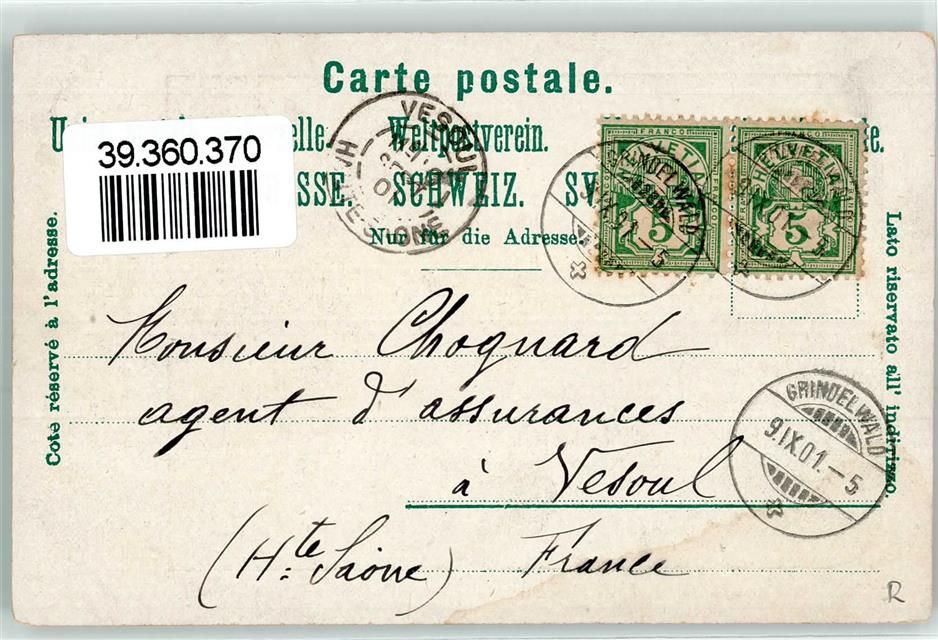 Carte postale.
elle. Weltpostverein.
39.360.370
SSE. SCHWEIZ. SV
Nur für die Adresse.
Coté réservé à l'adresse.
Lato riservato all' indirizzo.
VESOUL
FRANCO FRANCO
HELVETIA HELVETIA
5 5
GRINDELWALD
9.IX.01.-5
Monsieur Chognard
agent d'assurances
à Vesoul
(Hte Saône) France
GRINDELWALD
9.IX.01.-5
R